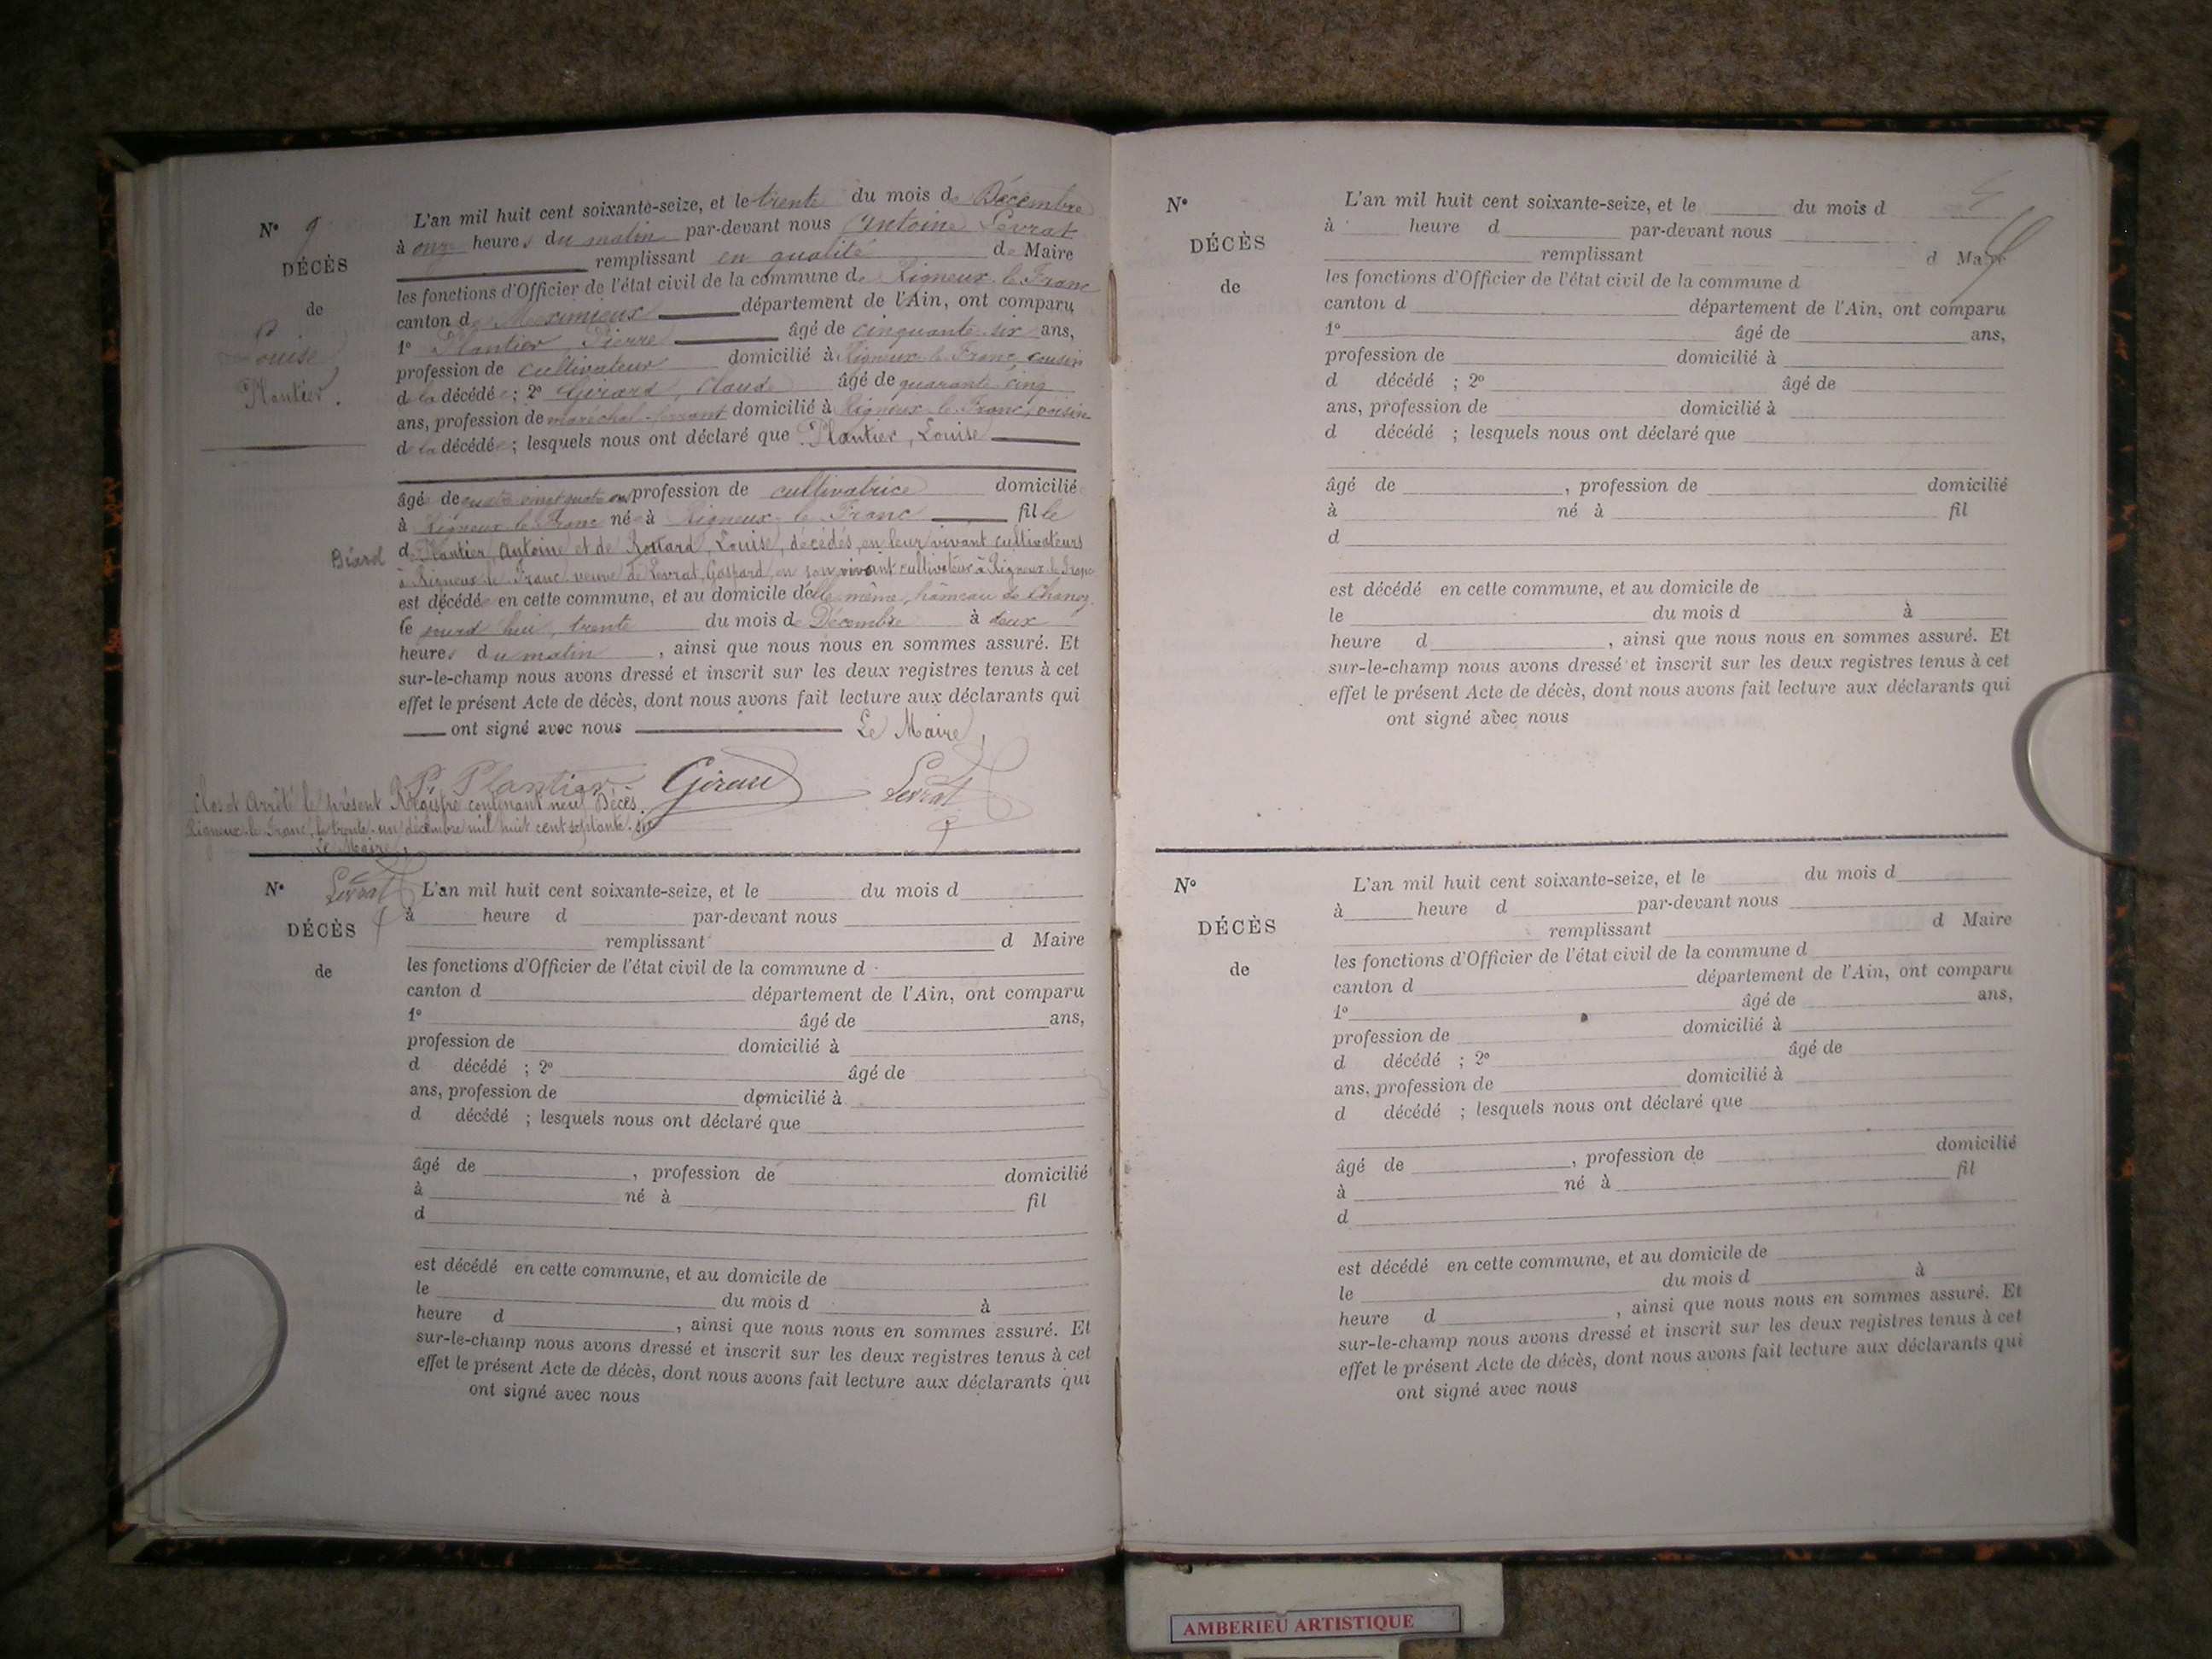 N° 9
DÉCÈS
de
Louise
Plantier.
L'an mil huit cent soixante-seize, et le trente du mois de Décembre
à onze heures du matin par-devant nous Antoine Levrat
remplissant en qualité de Maire
les fonctions d'Officier de l'état civil de la commune de Rigneux-le-Franc
canton de Meximieux département de l'Ain, ont comparu
1° Plantier, Pierre âgé de cinquante-six ans,
profession de cultivateur domicilié à Rigneux-le-Franc, cousin
de la décédée ; 2° Girard, Claude âgé de quarante cinq
ans, profession de maréchal-ferrant domicilié à Rigneux-le-Franc, voisin
de la décédée ; lesquels nous ont déclaré que Plantier, Louise
âgée de quatre vingt quatre ans profession de cultivatrice domicilié
à Rigneux le Franc née à Rigneux-le-Franc fille
Béard
de Plantier, Antoine et de Louise, décédés, en leur vivant cultivateurs
à Rigneux-le-Franc, veuve de Levrat, Gaspard, en son vivant cultivateur à Rigneux-le-Franc
est décédée en cette commune, et au domicile d'elle même, hameau de Chanoz.
le jourd'hui, trente du mois de Décembre à deux
heures du matin , ainsi que nous nous en sommes assuré. Et
sur-le-champ nous avons dressé et inscrit sur les deux registres tenus à cet
effet le présent Acte de décès, dont nous avons fait lecture aux déclarants qui
ont signé avec nous Le Maire,
P. Plantier Girard Levrat
Clos et Arrêté le présent Registre contenant neuf Décès.
Rigneux-le-Franc, le trente-un décembre mil huit cent septante-six
Le Maire,
Levrat
N°
DÉCÈS
de
L'an mil huit cent soixante-seize, et le du mois d
à heure d par-devant nous
remplissant d Maire
les fonctions d'Officier de l'état civil de la commune d
canton d département de l'Ain, ont comparu
1° âgé de ans,
profession de domicilié à
d décédé ; 2° âgé de
ans, profession de domicilié à
d décédé ; lesquels nous ont déclaré que
âgé de , profession de domicilié
à né à fil
d
est décédé en cette commune, et au domicile de
le du mois d à
heure d , ainsi que nous nous en sommes assuré. Et
sur-le-champ nous avons dressé et inscrit sur les deux registres tenus à cet
effet le présent Acte de décès, dont nous avons fait lecture aux déclarants qui
ont signé avec nous
N°
DÉCÈS
de
L'an mil huit cent soixante-seize, et le du mois d
à heure d par-devant nous
remplissant d Maire
les fonctions d'Officier de l'état civil de la commune d
canton d département de l'Ain, ont comparu
1° âgé de ans,
profession de domicilié à
d décédé ; 2° âgé de
ans, profession de domicilié à
d décédé ; lesquels nous ont déclaré que
âgé de , profession de domicilié
à né à fil
d
est décédé en cette commune, et au domicile de
le du mois d à
heure d , ainsi que nous nous en sommes assuré. Et
sur-le-champ nous avons dressé et inscrit sur les deux registres tenus à cet
effet le présent Acte de décès, dont nous avons fait lecture aux déclarants qui
ont signé avec nous
N°
DÉCÈS
de
L'an mil huit cent soixante-seize, et le du mois d
à heure d par-devant nous
remplissant d Maire
les fonctions d'Officier de l'état civil de la commune d
canton d département de l'Ain, ont comparu
1° âgé de ans,
profession de domicilié à
d décédé ; 2° âgé de
ans, profession de domicilié à
d décédé ; lesquels nous ont déclaré que
âgé de , profession de domicilié
à né à fil
d
est décédé en cette commune, et au domicile de
le du mois d à
heure d , ainsi que nous nous en sommes assuré. Et
sur-le-champ nous avons dressé et inscrit sur les deux registres tenus à cet
effet le présent Acte de décès, dont nous avons fait lecture aux déclarants qui
ont signé avec nous
AMBERIEU ARTISTIQUE